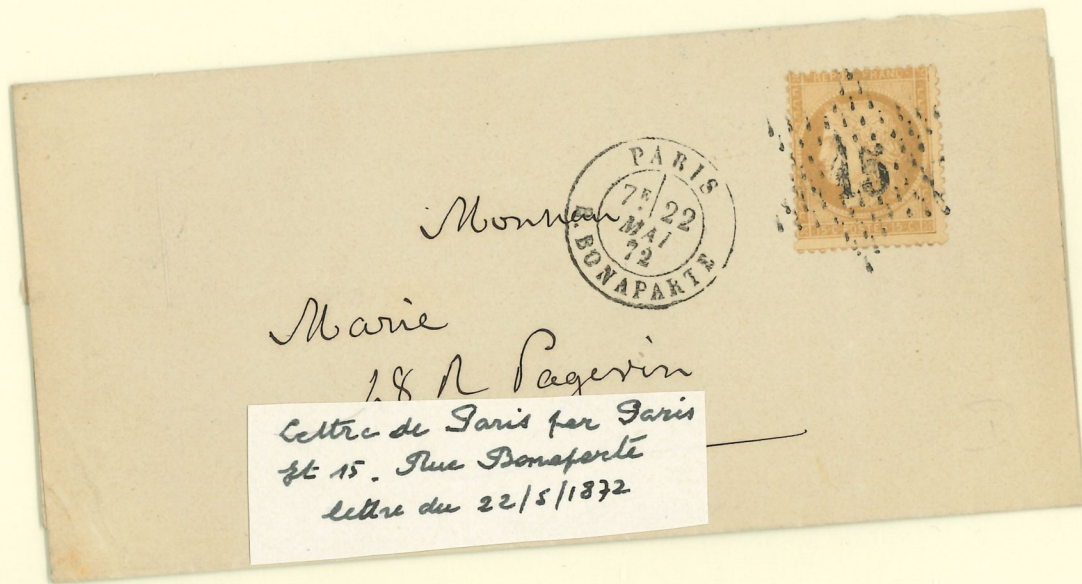 REPUB FRANC
15
PARIS
7E 22
MAI
72
R. BONAPARTE
Monsieur
Marie
18 R Pagevin
Lettre de Paris per Paris
Et 15. Rue Bonaparte
lettre du 22/5/1872